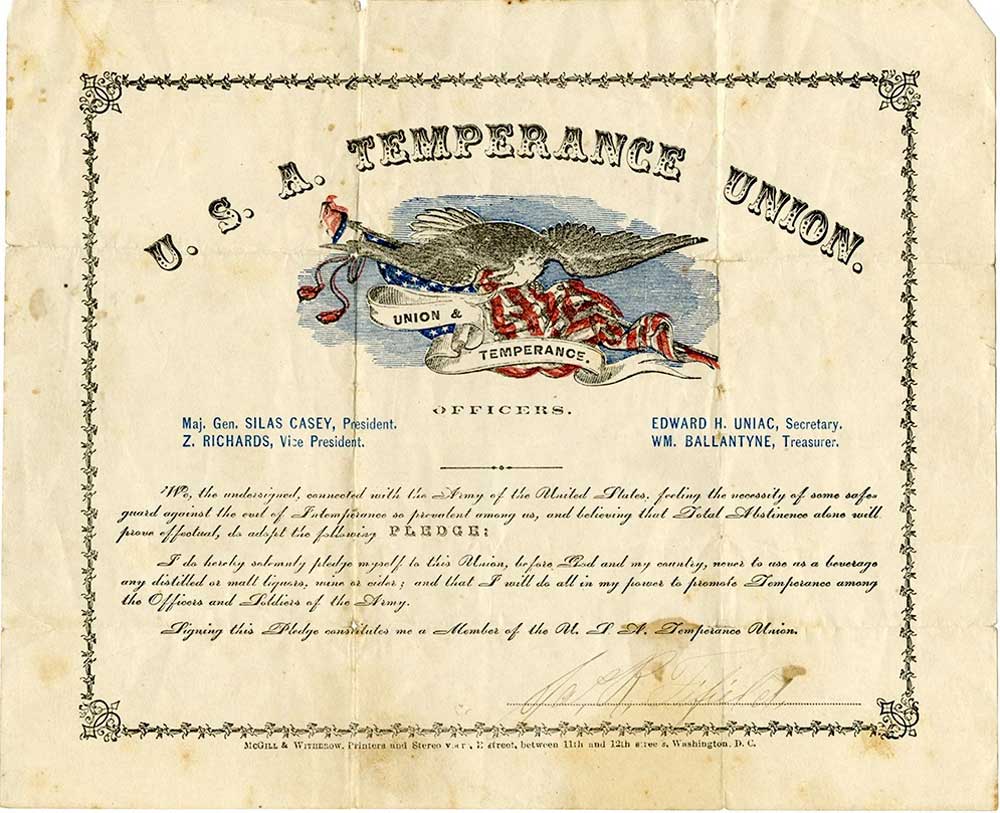 U. S. A. TEMPERANCE UNION.
UNION &
TEMPERANCE.
OFFICERS.
Maj. Gen. SILAS CASEY, President.
Z. RICHARDS, Vice President.
EDWARD H. UNIAC, Secretary.
WM. BALLANTYNE, Treasurer.
We, the undersigned, connected with the Army of the United States, feeling the necessity of some safe-
guard against the evil of Intemperance so prevalent among us, and believing that Total Abstinence alone will
prove effectual, do adopt the following PLEDGE:
I do hereby solemnly pledge myself to this Union, before God and my country, never to use as a beverage
any distilled or malt liquors, wine or cider; and that I will do all in my power to promote Temperance among
the Officers and Soldiers of the Army.
Signing this Pledge constitutes me a Member of the U. S. A. Temperance Union.
McGILL & WITHEROW, Printers and street, between 11th and 12th Washington, D. C.